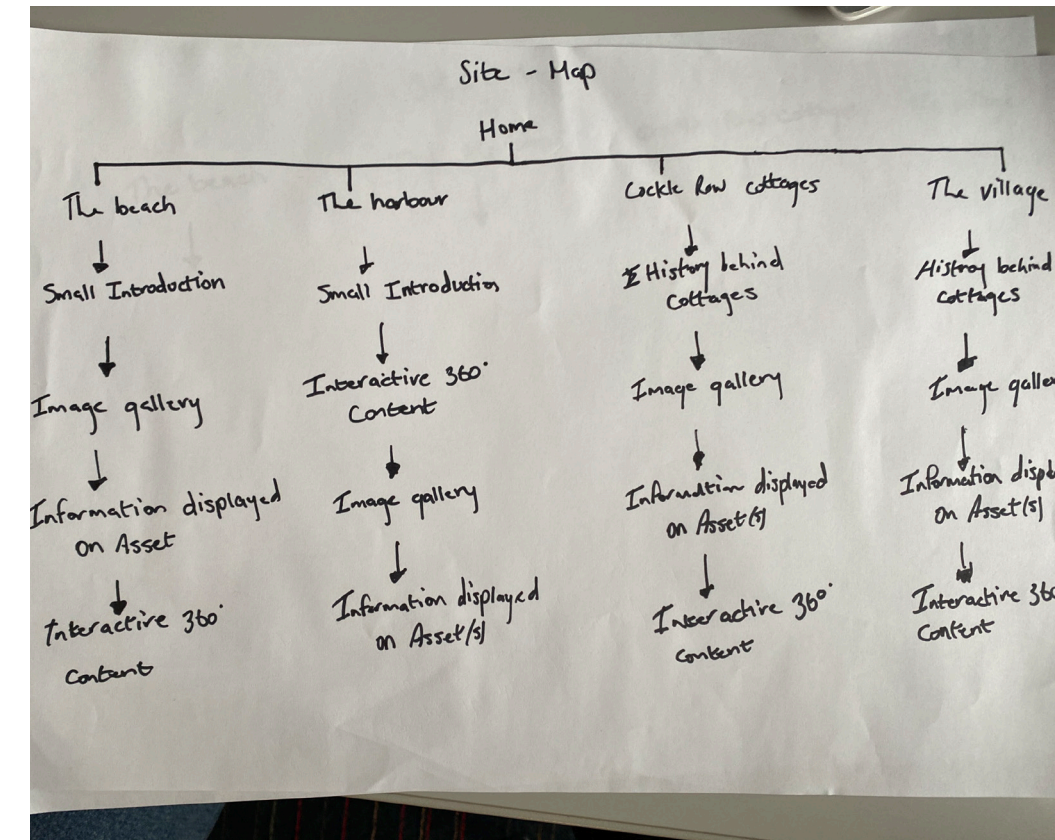 Site - Map
Home
The beach
Small Introduction
Image gallery
Information displayed
on Asset
Interactive 360°
Content
The harbour
Small Introduction
Interactive 360°
Content
Image gallery
Information displayed
on Asset(s)
Cockle Row cottages
History behind
Cottages
Image gallery
Information displayed
on Asset(s)
Interactive 360°
Content
The village
History behind
Cottages
Image galle
Information disp
on Asset(s)
Interactive 36
Content